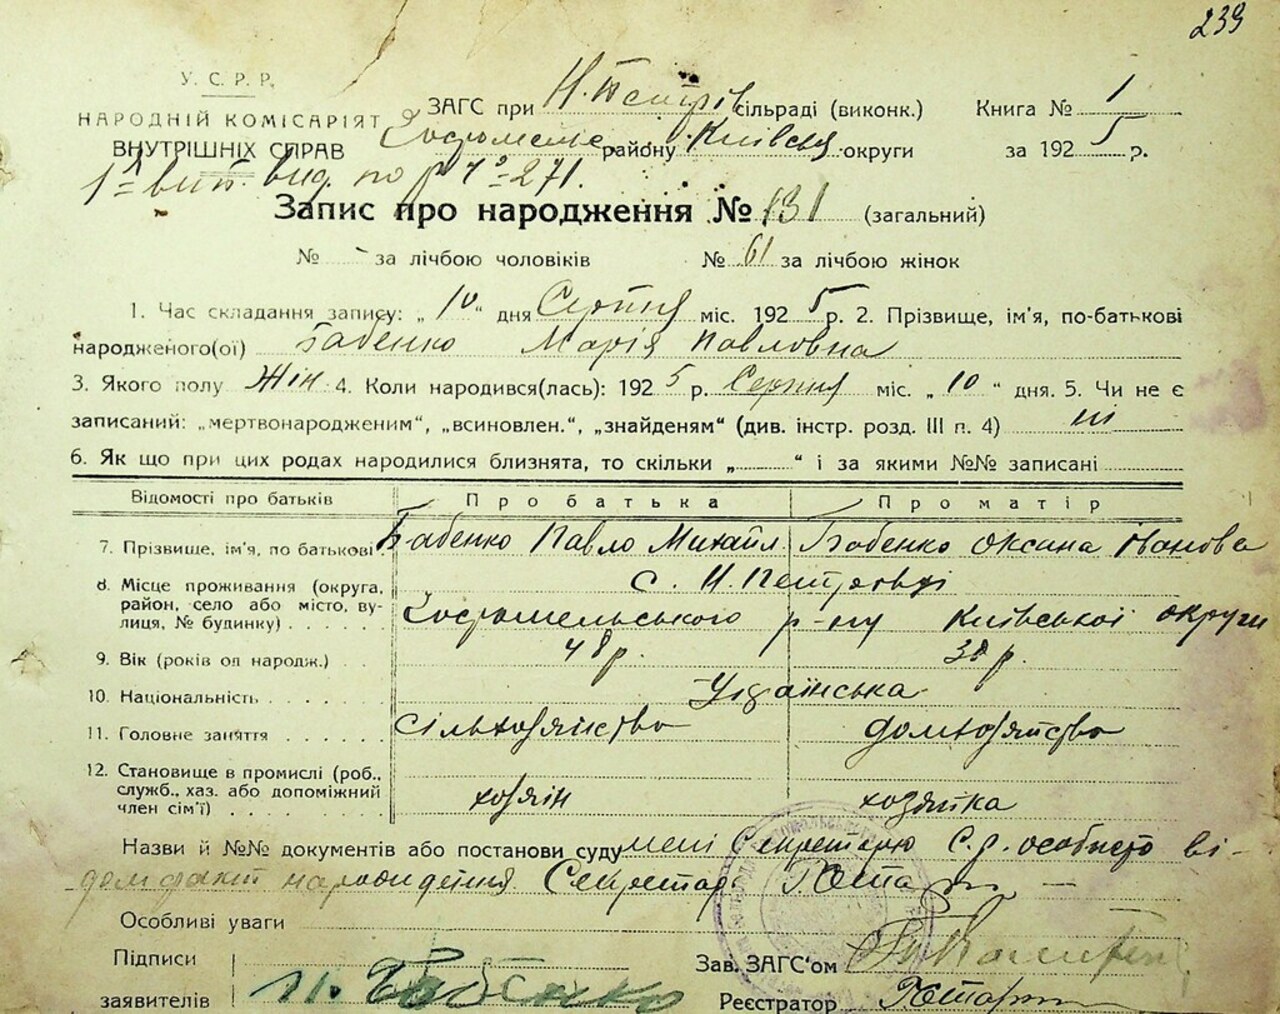 239
У. С. Р. Р.
НАРОДНІЙ КОМІСАРІЯТ
ВНУТРІШНІХ СПРАВ
ЗАГС при Н. Петрів сільраді (виконк.)
районy Київськ округи
Книга № 1
за 1925 р.
1= вип. вид. по р № 271.
Запис про народження № 131 (загальний)
№ - за лічбою чоловіків № 61 за лічбою жінок
1. Час складання запису: „10“ дня Серпня міс. 1925 р. 2. Прізвище, ім'я, по-батькові
народженого(ої) Бабенко Марія Павловна
3. Якого полу Жін 4. Коли народився(лась): 1925 р. Серпня міс. „10“ дня. 5. Чи не є
записаний: „мертвонародженим“, „всиновлен.“, „знайденям“ (див. інстр. розд. III п. 4) ні
6. Як що при цих родах народилися близнята, то скільки „ “ і за якими №№ записані
Відомості про батьків Про батька Про матір
7. Прізвище, ім'я, по батькові Бабенко Павло Михайл. Бабенко Оксана Іванова
8. Місце проживання (округа, район, село або місто, вулиця, № будинку) с. Н. Петрівці
Гостомельського р-ну Київської округи
9. Вік (років од народж.) 48 р. 38 р.
10. Національність Українська
11. Головне заняття сільхозяйство домхозяйство
12. Становище в промислі (роб., служб., хаз. або допоміжний член сім'ї) хозяїн хозяйка
Назви й №№ документів або постанови суду мені Секретарю С.р. особисто ві-
дом факт народидення. Секретарь
Особливі уваги
Підписи
заявителів П. Бабенко
Зав. ЗАГС'ом
Реєстратор